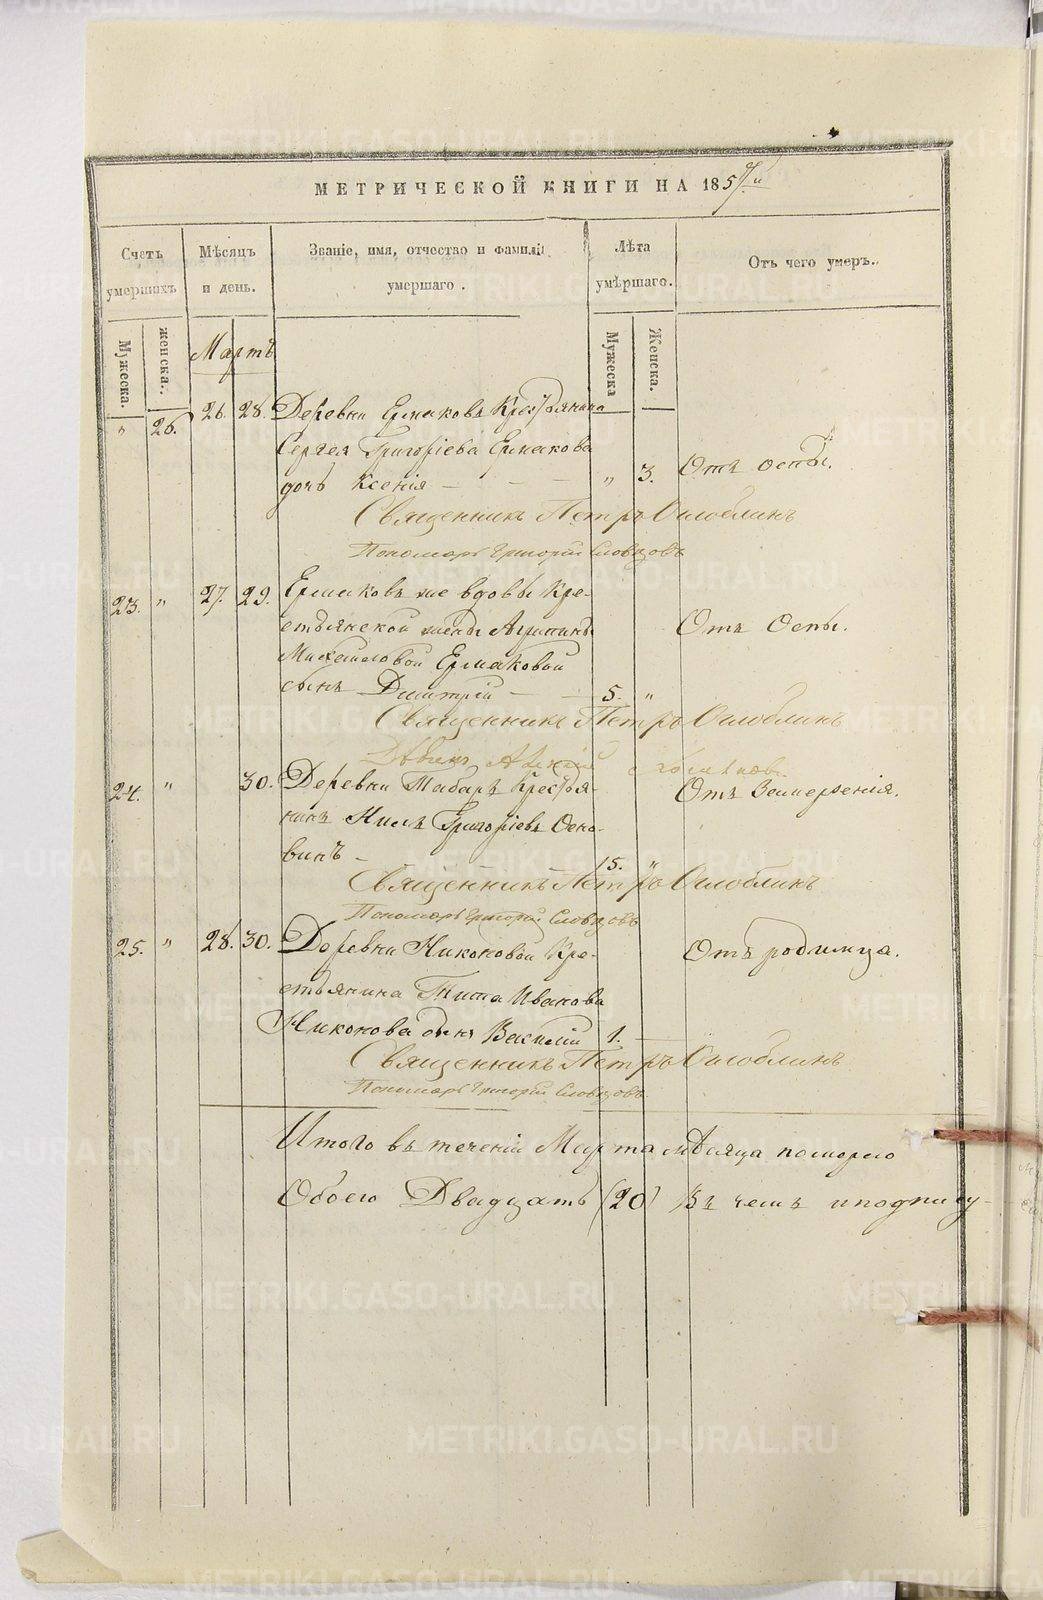 МЕТРИЧЕСКОЙ КНИГИ НА 185
Счетъ умершихъ
Мѣсяцъ и день.
Званіе, имя, отчество и фамилія умершаго.
Лѣта умѣршаго.
Отъ чего умеръ.
Мужеска.
женска.
Мужеска
Женска.
Мартъ
" 26. 26. 28. Деревни Ермаковъ Крестьянина
Сергея Григоріева Ермакова
дочь Ксенія — — — " 3. Отъ оспы.
Священникъ Петръ Оглоблинъ
Пономарь Григорій Словцовъ
23. " 27. 29. Ермаковъ же вдовы Кре-
стьянской жены
Михайловой Ермаковой
сынъ Дмитрій — — 5. " Отъ Оспы.
Священникъ Петръ Оглоблинъ
24. " 30. Деревни Табаръ Крестья-
нинъ Нилъ Григоріевъ Осно-
винъ — 15. " Отъ Замерзенія.
Священникъ Петръ Оглоблинъ
Пономарь Григорій Словцовъ
25. " 28. 30. Деревни Никоновой Кре-
стьянина Тита Иванова
Никонова сынъ Василій 1. — Отъ родимца.
Священникъ Петръ Оглоблинъ
Пономарь Григорій Словцовъ
Итого въ теченіи Марта мѣсяца померло
Обоего Двадцать (20) Въ чемъ и подпису-
METRIKI.GASO-URAL.RU